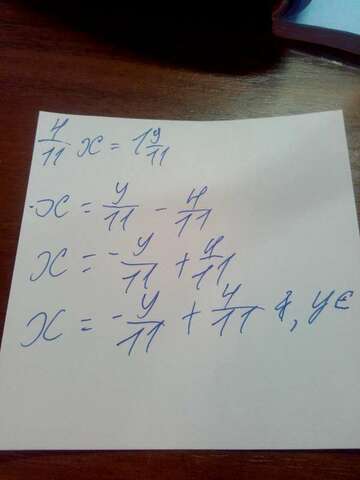 4/11 x = 1 y/11
-x = y/11 - 4/11
x = -y/11 + 4/11
x = -y/11 + 4/11 , y ∈